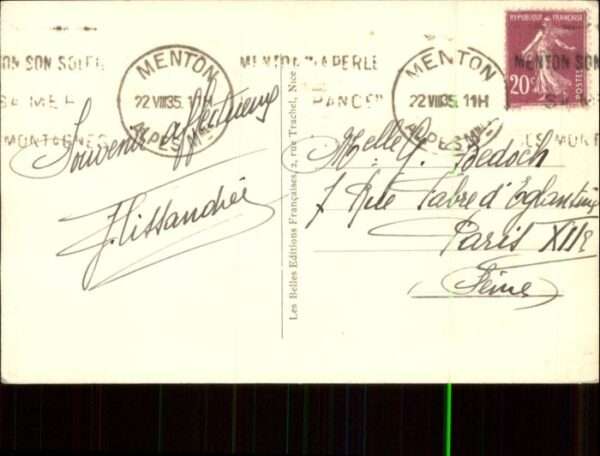 RÉPUBLIQUE FRANÇAISE
20c
POSTES
MENTON
22 VIII 35. 11H
ALPES Mmes
MENTON
22 VIII 35. 11H
ALPES Mmes
ON SON SOLEIL
SA MER
MONTAGNES
MENTON "LA PERLE
FRANCE"
MENTON SON SO
SA M
SES MONT
Souvenir affectueux
Melle G.
7 Rue Fabre d'Eglantine
Paris XIIe
Seine
Les Belles Editions Françaises, 2, rue Trachel, Nice